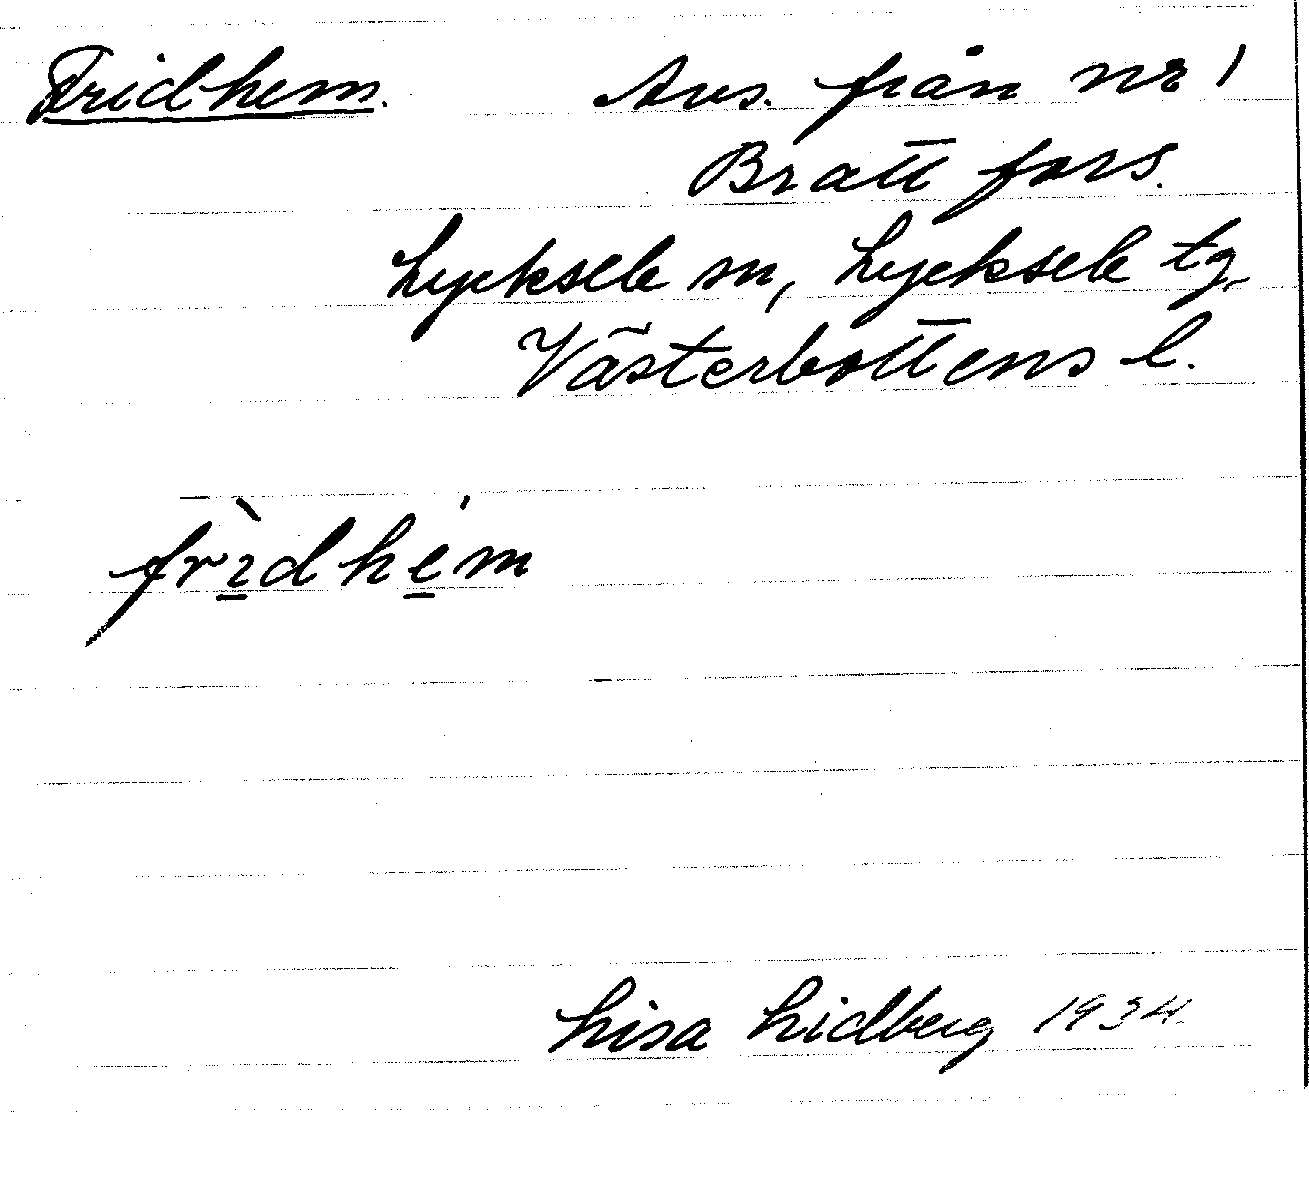 Fridhem. Avs. från nr 1
Brattfors.
Lycksele sn, Lycksele tg.
Västerbottens l.
frìdhém
Lisa Lidberg 1934.